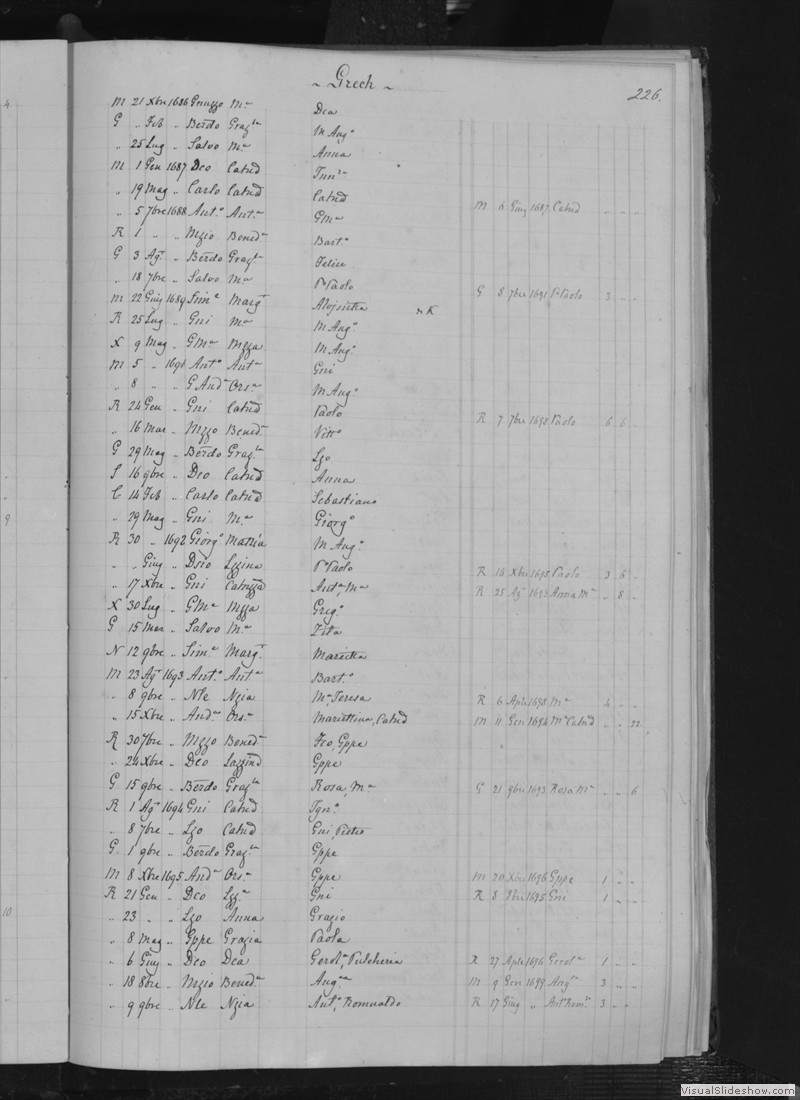 ~ Grech ~
226.
M 21 Xbre 1686 Gnuzzo Mª Dea
G „ Feb „ Berdo Grazla M Angª
„ 25 Lug „ Salvo Mª Anna
M 1 Gen 1687 Dco Catnd
„ 19 Mag „ Carlo Catnd Catnd
„ 5 7bre 1688 Antº Antª GMª M 6 Giug 1687 Catnd „ „ „
R 1 „ „ Mzio Bendª Bartº
G 3 Agº „ Berdo Grazla Felice
„ 18 7bre „ Salvo Mª Pº Paolo
M 22 Giug 1689 Simº Margª G 8 7bre 1691 Pº Paolo 3 „ „
R 25 Lug „ Gni Mª M Angº
X 9 Mag „ GMª Mzza M Angº
M 5 „ Antº Antª Gni
„ 8 „ G Andª Orsª M Angº
R 24 Gen „ Gni Catnd Paolo R 7 7bre 1690 Paolo 6 6 „
„ 16 Mar „ Mzzo Bendª Vittº
G 29 Mag „ Berdo Grazla Lzo
S 16 9bre „ Dco Catnd Anna
C 14 Feb „ Carlo Catnd Sebastiano
„ 29 Mag „ Gni Mª Giorgº
R 30 „ 1692 Giorgº Mattia M Angº
„ „ Giug „ Dsio Lzzina Pº Paolo R 16 Xbre 1695 Paolo 3 6 „
„ 17 Xbre „ Gni Catuzza Antª Mª R 25 Agº 1693 Anna Mª „ 8 „
X 30 Lug „ GMª Mzza Gregº
G 15 Mar „ Salvo Mª Zita
N 12 9bre „ Simº Margª Marietta
M 23 Agº 1693 Antº Antª Bartº
„ 8 9bre „ Nle Nzia Mª Teresa R 6 Aple 1698 Mª 4 „ „
„ 15 Xbre „ Andª Orsª Mariettina, Catnd M 11 Gen 1694 Mª Catnd „ „ 22
R 30 7bre „ Mzzo Bendª Fco, Gppe
„ 24 Xbre „ Dco Lazzind Gppe
G 15 9bre „ Berdo Grazla Rosa, Mª G 21 9bre 1693 Rosa Mª „ „ 6
R 1 Agº 1694 Gni Catnd Ignº
„ 8 7bre „ Lzo Catnd Gni, Pietro
G 1 9bre „ Berdo Grazla Gppe
M 8 Xbre 1695 Andª Orsª Gppe M 20 Xbre 1696 Gppe 1 „ „
R 21 Gen „ Dco Lzzª Gni R 8 1695 Gni 1 „ „
„ 23 „ „ Lzo Anna Grazio
„ 8 Mag „ Gppe Grazia Paola
„ 6 Giug „ Dco Dea Gerolª, Pulcheria R 27 Aple 1696 Gerolª 1 „ „
„ 18 8bre „ Mzio Bendª Angª M 9 Gen 1699 Angª 3 „ „
„ 9 9bre „ Nle Nzia Antº, Romualdo R 17 Giug „ Ant Romº 3 „ „
4
9
10
VisualSlideshow.com